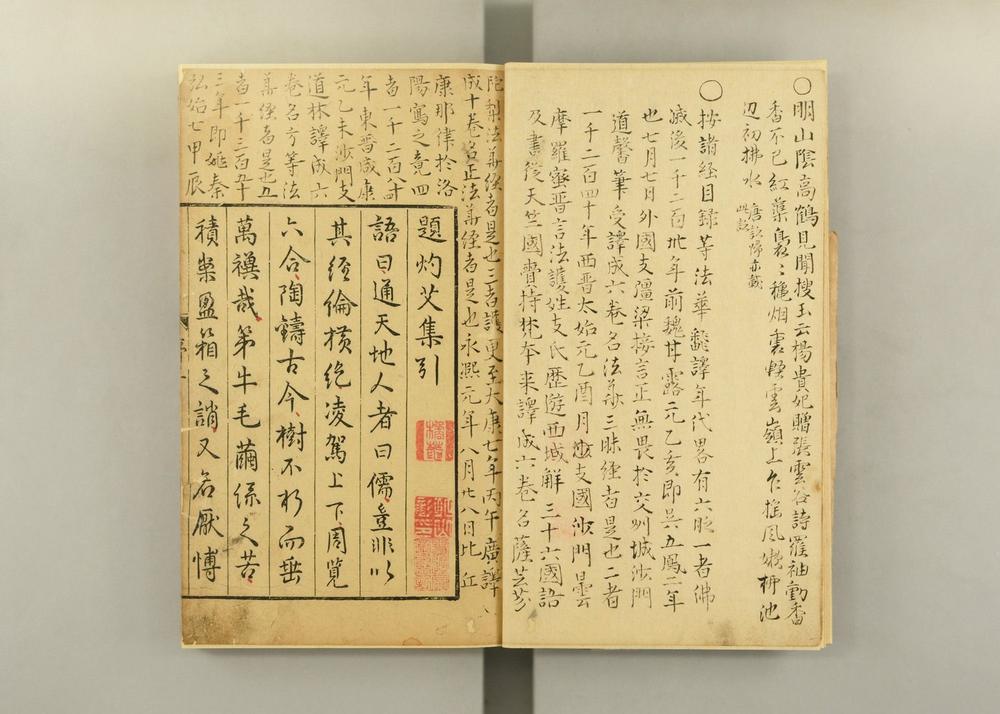 ○明山陰高鶴見聞搜玉云楊貴妃贈張雲谷詩羅袖動香
香不已紅蕖裊々穐烟裏輕雲嶺上乍搖風嫩柳池
辺初拂水唐詩帰亦載
此詩
○按諸経目録等法華翻譯年代畧有六時一者佛
滅後一千二百卅年前魏甘露元乙亥即呉五鳳二年
也七月七日外國支彊梁接言正無畏於交州城沙門
道馨筆受譯成六卷名法華三昧経者是也二者
一千二百四十年西晋太始元乙酉月支國沙門曇
摩羅蜜晋言法護姓支氏歴遊西域解三十六國語
及書従天竺國賷持梵本来譯成六卷名薩芸芬
陀利法華経者是也三者護更至大康七年丙午廣譯
成十卷名正法華経者是也永熙元年八月廿八日比丘
康那律於洛
陽寫之竟四
者一千二百八十
年東晋咸康
元乙未沙門支
道林譯成六
卷名方等法
華経者是也五
者一千三百五十
三年即姚秦
弘始七甲辰
題灼艾集引
語曰通天地人者曰儒豈非以
其經倫横絶凌駕上下周覧
六合陶鑄古今樹不朽而垂
萬禩哉第牛毛繭絲之苦
積案盈箱之誚又名厭博